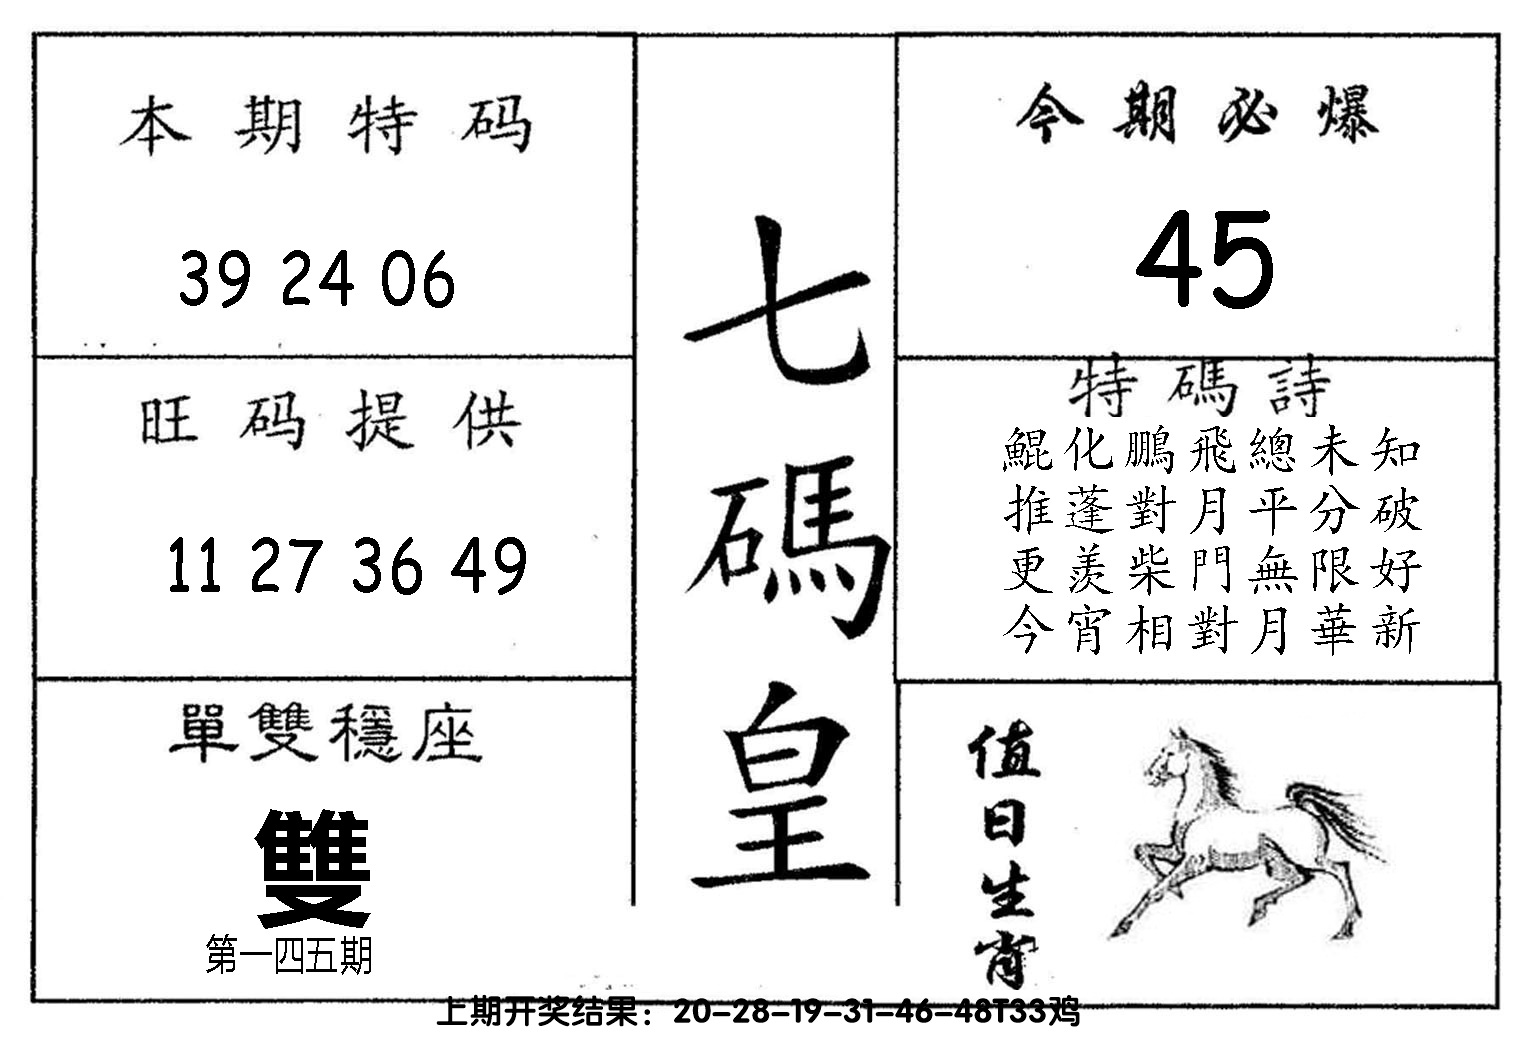 本期特码
39 24 06
旺码提供
11 27 36 49
單雙穩座
雙
第一四五期
七碼皇
今期必爆
45
特碼詩
鯤化鵬飛總未知
推蓬對月平分破
更羨柴門無限好
今宵相對月華新
值日生肖
上期开奖结果：20-28-19-31-46-48T33鸡